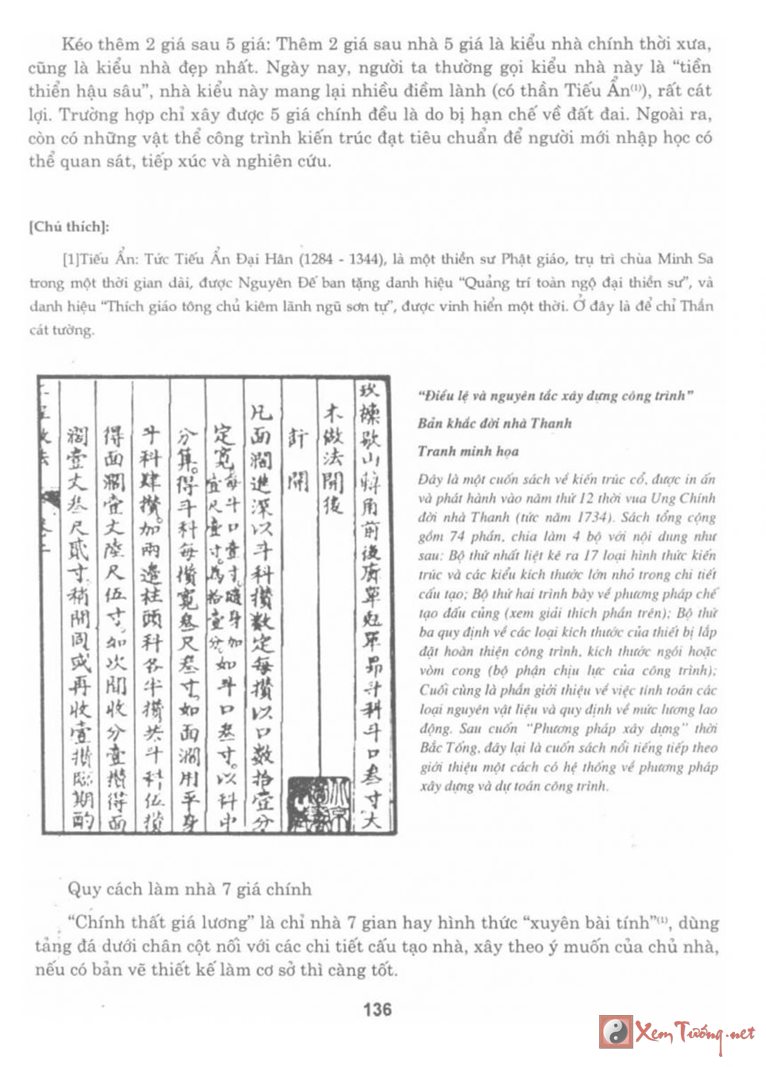 Kéo thêm 2 giá sau 5 giá: Thêm 2 giá sau nhà 5 giá là kiểu nhà chính thời xưa,
cũng là kiểu nhà đẹp nhất. Ngày nay, người ta thường gọi kiểu nhà này là “tiền
thiển hậu sâu”, nhà kiểu này mang lại nhiều điềm lành (có thần Tiếu Ẩn⁽¹⁾), rất cát
lợi. Trường hợp chỉ xây được 5 giá chính đều là do bị hạn chế về đất đai. Ngoài ra,
còn có những vật thể công trình kiến trúc đạt tiêu chuẩn để người mới nhập học có
thể quan sát, tiếp xúc và nghiên cứu.
[Chú thích]:
[1]Tiếu Ẩn: Tức Tiếu Ẩn Đại Hân (1284 - 1344), là một thiền sư Phật giáo, trụ trì chùa Minh Sa
trong một thời gian dài, được Nguyên Đế ban tặng danh hiệu “Quảng trí toàn ngộ đại thiền sư”, và
danh hiệu “Thích giáo tông chủ kiêm lãnh ngũ sơn tự”, được vinh hiển một thời. Ở đây là để chỉ Thần
cát tường.
木做法開後
計開
凡面濶進深以斗科攢數定每攢以口數拾壹分
定寬每斗口壹寸隨身加壹尺壹寸為拾壹分如斗口叁寸以科中
分算得斗科每攢寬叁尺叁寸如面濶用平身
斗科肆攢加兩邊柱頭科各半攢共斗科伍攢
得面濶壹丈陸尺伍寸如次間收分壹攢得面
濶壹丈叁尺貳寸稍間同或再收壹攢臨期酌
“Điều lệ và nguyên tắc xây dựng công trình”
Bản khắc đời nhà Thanh
Tranh minh họa
Đây là một cuốn sách về kiến trúc cổ, được in ấn
và phát hành vào năm thứ 12 thời vua Ung Chính
đời nhà Thanh (tức năm 1734). Sách tổng cộng
gồm 74 phần, chia làm 4 bộ với nội dung như
sau: Bộ thứ nhất liệt kê ra 17 loại hình thức kiến
trúc và các kiểu kích thước lớn nhỏ trong chi tiết
cấu tạo; Bộ thứ hai trình bày về phương pháp chế
tạo đấu củng (xem giải thích phần trên); Bộ thứ
ba quy định về các loại kích thước của thiết bị lắp
đặt hoàn thiện công trình, kích thước ngói hoặc
vòm cong (bộ phận chịu lực của công trình);
Cuối cùng là phần giới thiệu về việc tính toán các
loại nguyên vật liệu và quy định về mức lương lao
động. Sau cuốn “Phương pháp xây dựng” thời
Bắc Tống, đây lại là cuốn sách nổi tiếng tiếp theo
giới thiệu một cách có hệ thống về phương pháp
xây dựng và dự toán công trình.
Quy cách làm nhà 7 giá chính
“Chính thất giá lương” là chỉ nhà 7 gian hay hình thức “xuyên bài tính”⁽¹⁾, dùng
tảng đá dưới chân cột nối với các chi tiết cấu tạo nhà, xây theo ý muốn của chủ nhà,
nếu có bản vẽ thiết kế làm cơ sở thì càng tốt.
136
XemTướng.net